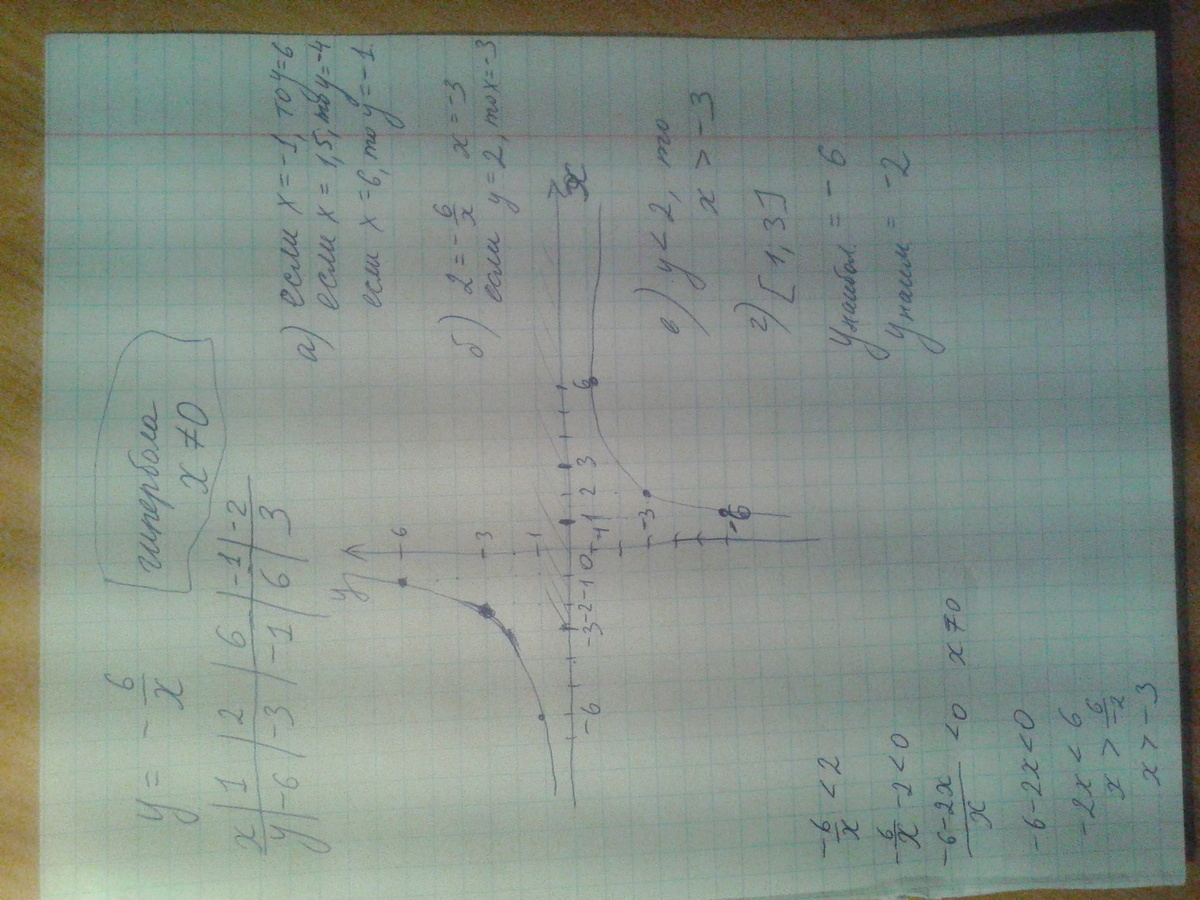 y = - 6/x
гипербола
x ≠ 0
x | 1 | 2 | 6 | -1 | -2
y | -6 | -3 | -1 | 6 | 3
а) если x = -1, то y = 6
если x = 1,5, то y = -4
если x = 6, то y = -1
y
6
3
1
-6 -3 -2 -1 0 1 2 3 6 x
-1
-3
-6
б) 2 = - 6/x x = -3
если y = 2, то x = -3
в) y < 2, то
x > -3
г) [1, 3]
y наибол. = -6
y наим = -2
- 6/x < 2
- 6/x - 2 < 0
-6-2x/x < 0 x ≠ 0
-6 - 2x < 0
-2x < 6
x > 6/-2
x > -3